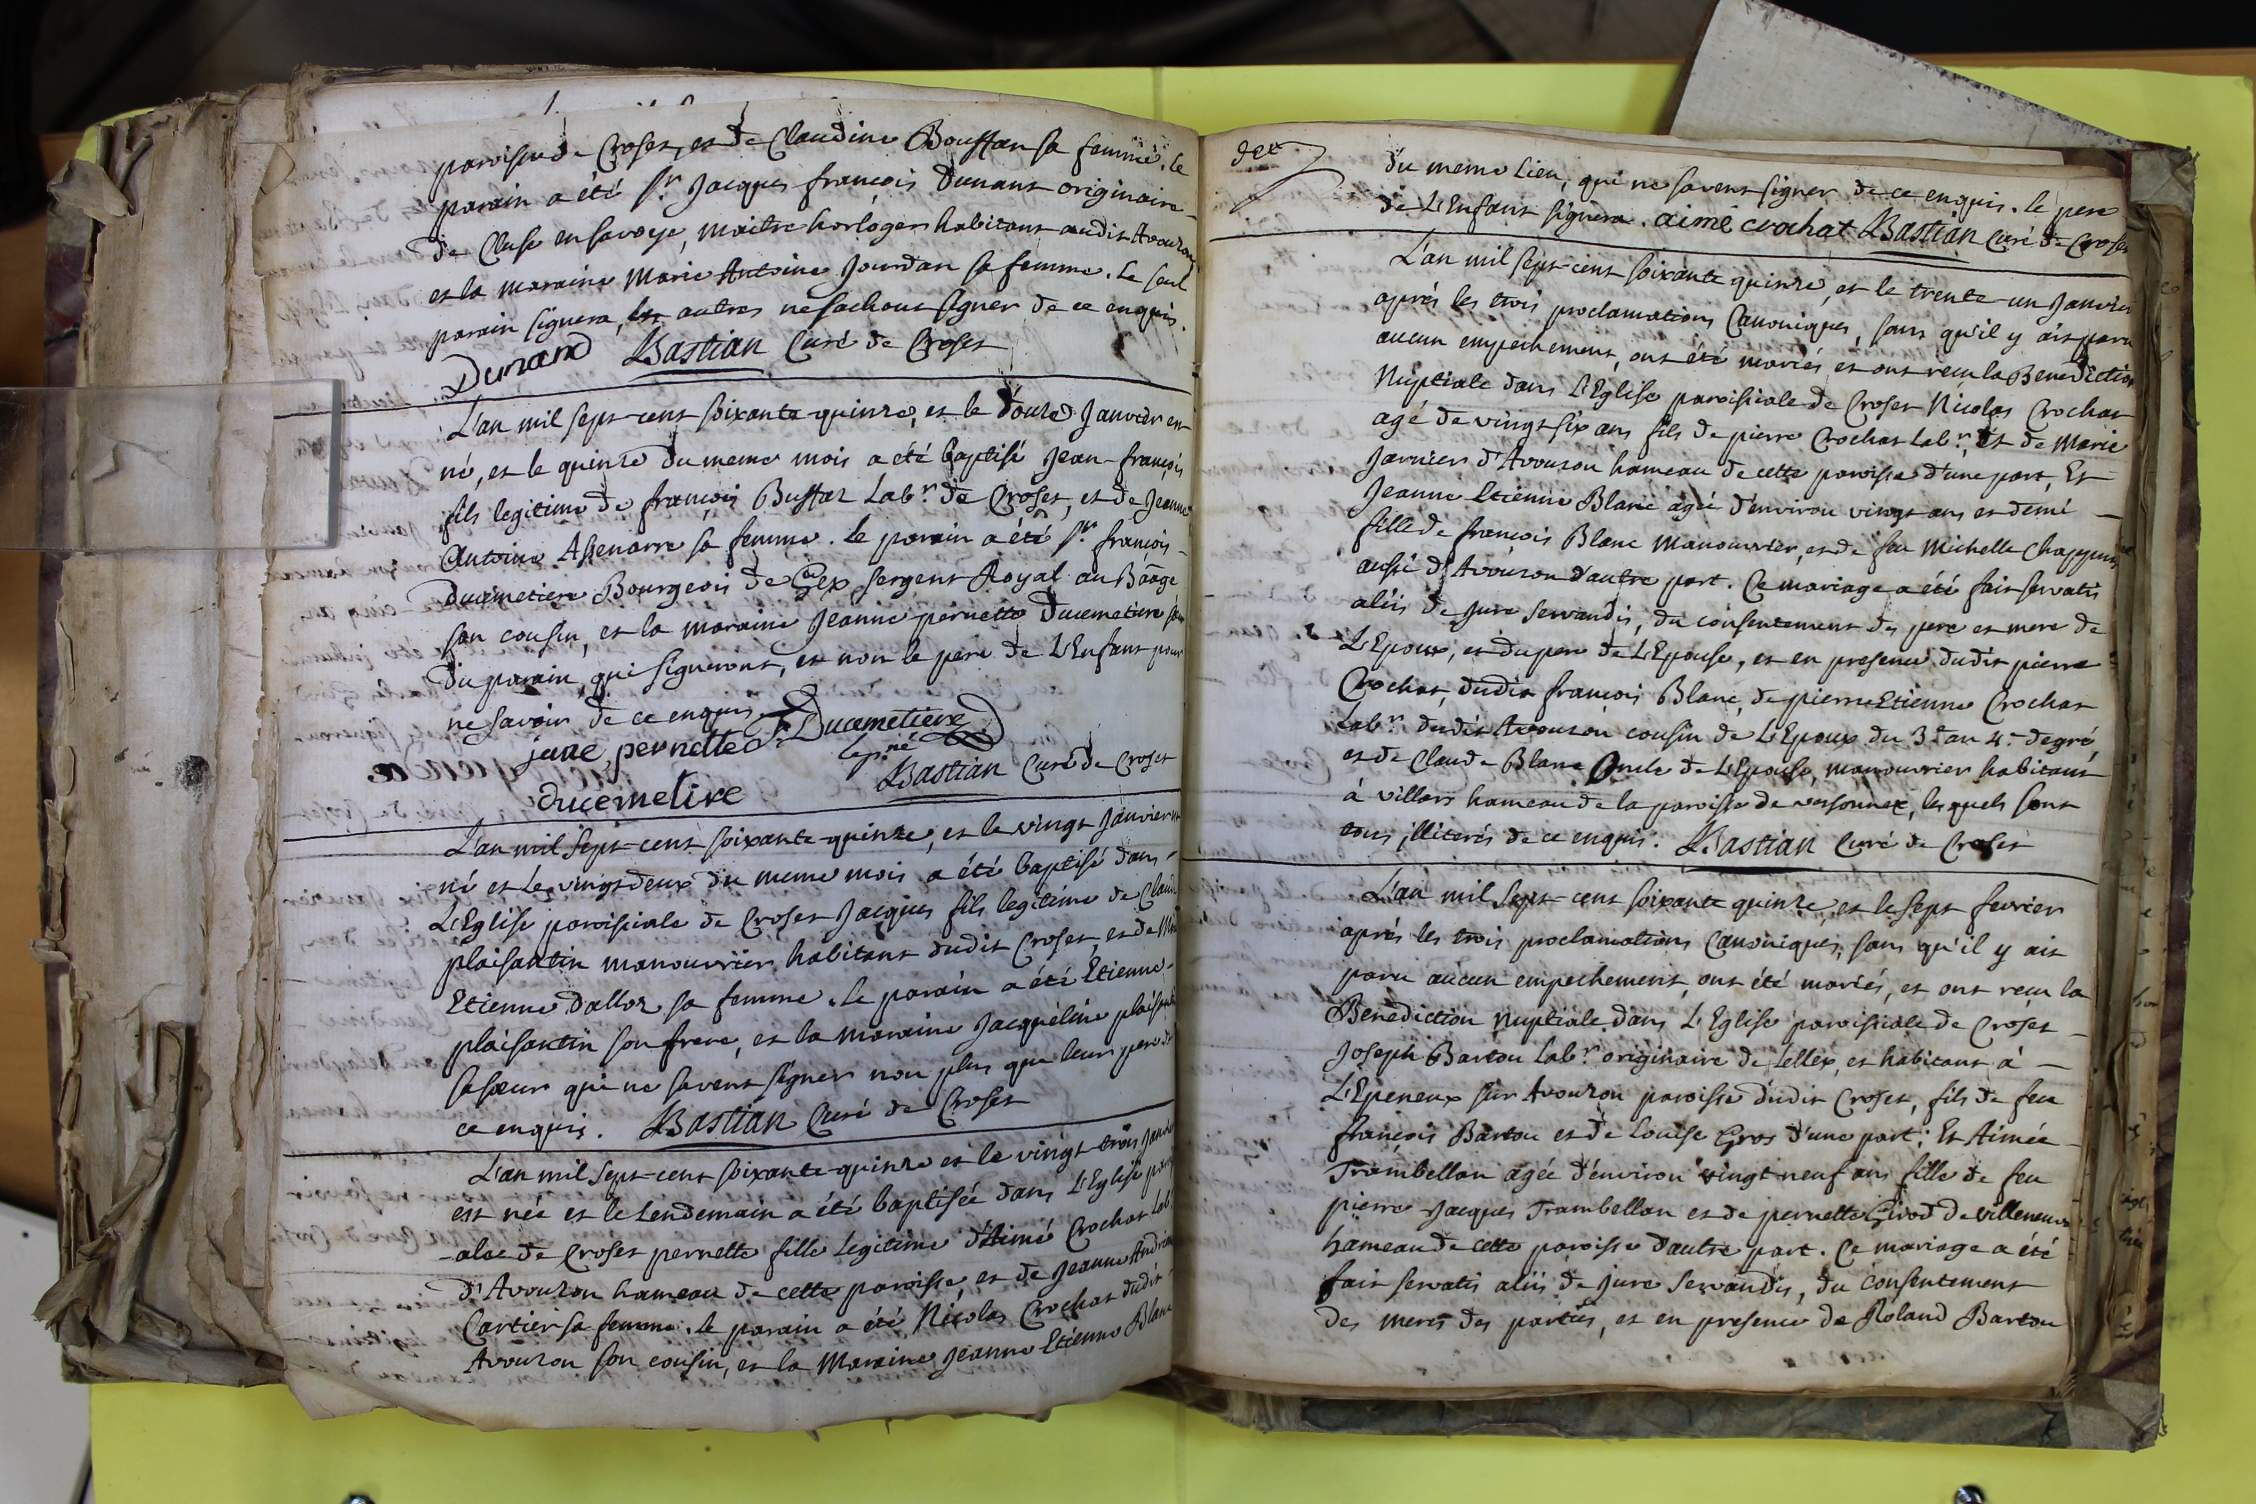 paroisse de Croset, et de Claudine Bouffar sa femme. le
parain a été Sr. Jacques françois Dunant originaire
de Cluse en Savoye, maitre horloger habitant audit Avouzon
et la maraine Marie Antoine Jourdan sa femme. Le seul
parain signera, les autres ne sachant signer de ce enquis.
Dunand Bastian Curé de Croset
L'an mil sept-cent soixante-quinze, et le douze Janvier est
né, et le quinze du meme mois a été baptisé Jean-françois
fils legitime de françois Buffaz Labr. de Croset, et de Jeanne
Antoine Assenarre sa femme. Le parain a été Sr. françois
Ducimetiere Bourgeois de Gex sergent Royal au Baage
son cousin, et la maraine Jeanne pernette Ducimetiere
du parain, qui signeront, et non le pere de L'Enfant pour
ne savoir de ce enquis
jane pernette Ducemetiere
Bastian Curé de Croset
ducemetire
L'an mil sept-cent soixante-quinze, et le vingt Janvier est
né et Le vingt deux du meme mois a été baptisé dans
L'Eglise paroissiale de Croset Jacques fils legitime de Claude
plaisantin manouvrier habitant dudit Croset, et de
Etienne Dalloz sa femme. Le parain a été Etienne
plaisantin son frere, et la maraine Jacqueline plaisantin
sa sœur qui ne savent signer non plus que leur pere de
ce enquis. Bastian Curé de Croset
L'an mil sept-cent soixante-quinze et le vingt trois Janvier
est née et le Lendemain a été baptisée dans L'Eglise
-ale de Croset pernette fille Legitime d'Aimé Crochat Labr
d'Avouzon hameau de cette paroisse, et de Jeanne Andriane
Cartier sa femme. le parain a été Nicolas Crochat dudit
Avouzon son cousin, et la Maraine Jeanne Etienne Blanc
du meme Lieu, qui ne savent signer de ce enquis. le pere
de L'Enfant signera. aimé crochat Bastian Curé de Croset
L'an mil sept-cent soixante quinze, et le trente-un Janvier
aprés les trois proclamations Canoniques, sans qu'il y ait paru
aucun empechement, ont été mariés et ont recu la Benediction
Nuptiale dans L'Eglise paroissiale de Croset Nicolas Crochat
agé de vingt six ans fils de pierre Crochat Labr. et de Marie
Jarnier d'Avouzon hameau de cette paroisse d'une part, Et
Jeanne Etienne Blanc agée d'environ vingt ans et demi
fille de françois Blanc Manouvrier, et de feu Michelle Chappuis
aussi d'Avouzon d'autre part. Ce mariage a été fait servatis
aliis de Jure servandis, du consentement des pere et mere de
L'Epoux, et du pere de L'Epouse, et en presence dudit pierre
Crochat, dudit françois Blanc, de pierre Etienne Crochat
Labr. dudit Avouzon cousin de L'Epoux du 3e au 4e degré,
et de Claude Blanc Oncle de L'Epouse, manouvrier habitant
à villars hameau de la paroisse de versonnex, lesquels sont
tous illiterés de ce enquis. Bastian Curé de Croset
L'an mil sept-cent soixante quinze, et le sept fevrier
aprés les trois proclamations Canoniques, sans qu'il y ait
paru aucun empechement, ont été mariés, et ont recu la
Benediction Nuptiale dans L'Eglise paroissiale de Croset
Joseph Barton Labr. originaire de Lellex, et habitant à
L'Epeneux sur Avouzon paroisse dudit Croset, fils de feu
françois Barton et de Louise Gros d'une part; Et Aimée
Trambellan agée d'environ vingt neuf ans fille de feu
pierre Jacques Trambellan et de pernette Girod de villeneuve
hameau de cette paroisse d'autre part. Ce mariage a été
fait servatis aliis de jure servandis, du consentement
des meres des parties, et en presence de Roland Barton